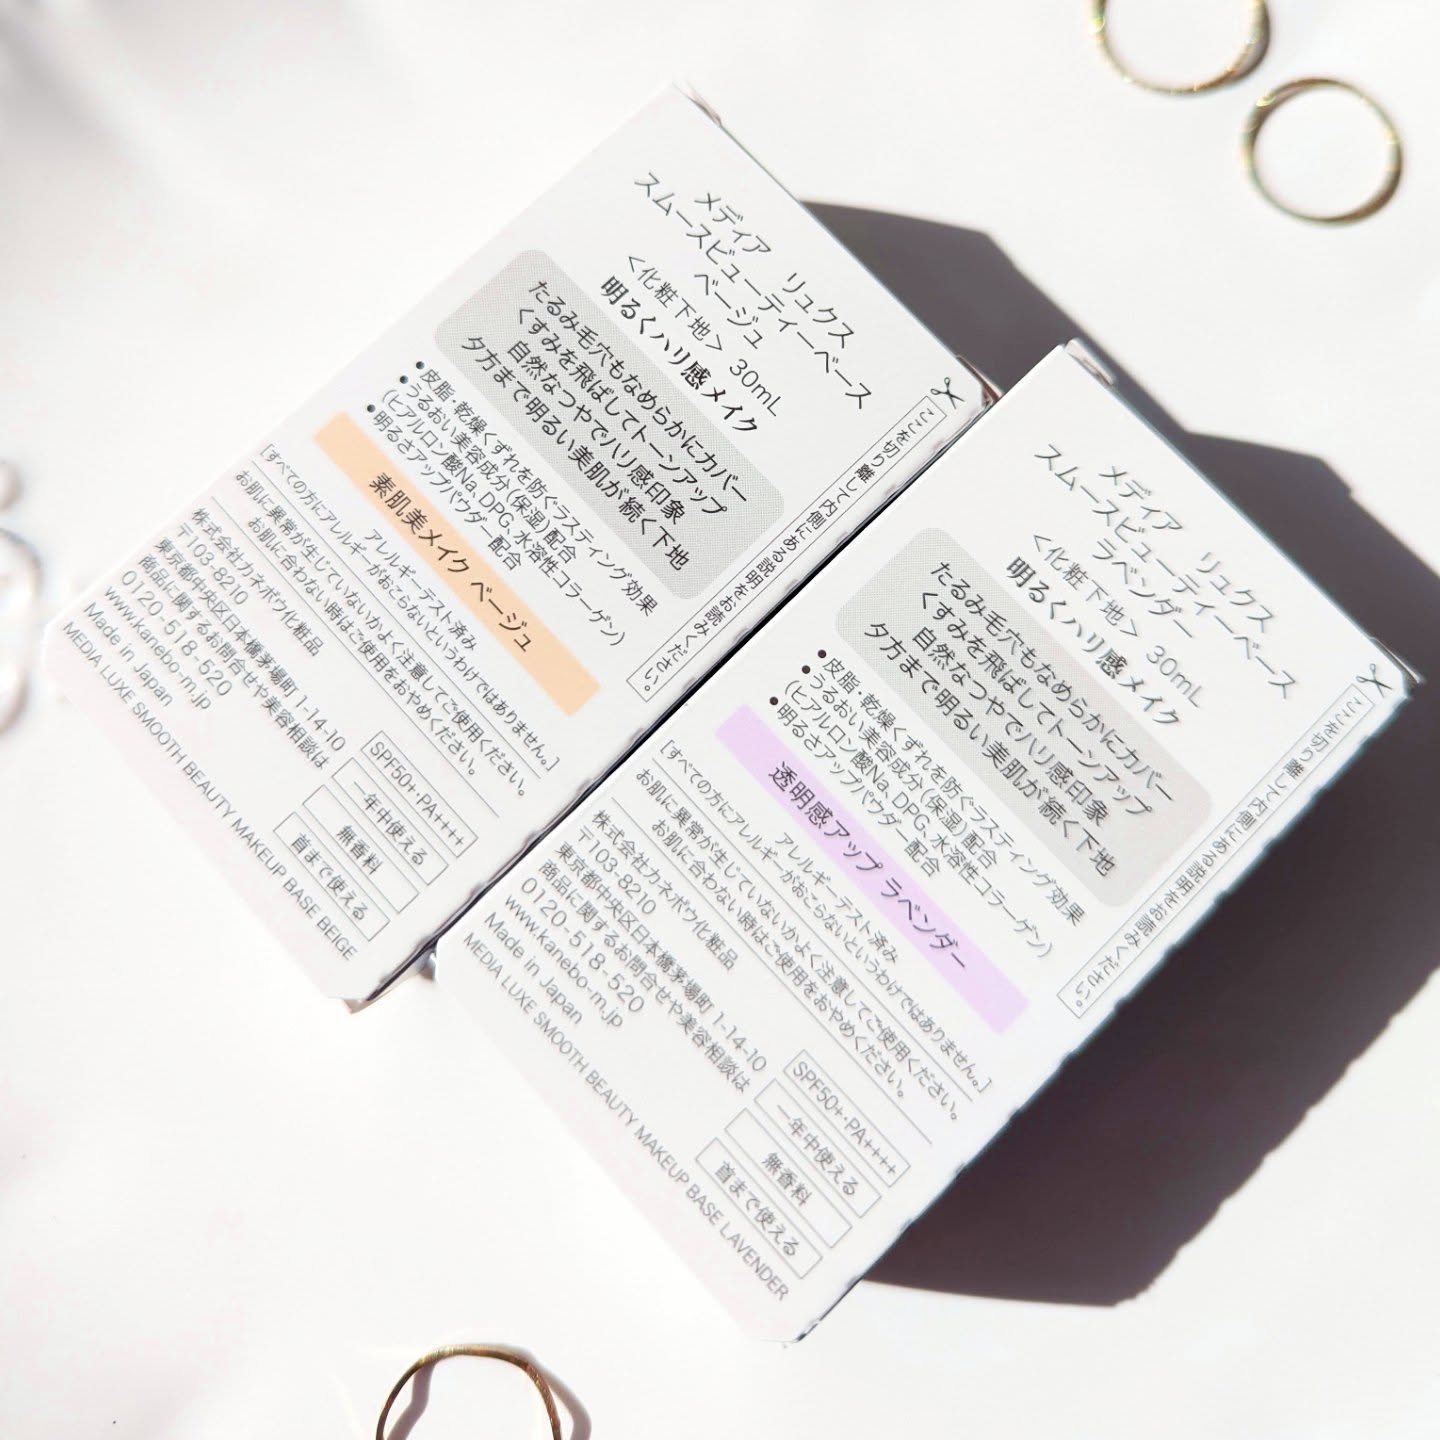 メディア リュクス
スムースビューティーベース
ベージュ
＜化粧下地＞ 30mL
明るくハリ感メイク
たるみ毛穴もなめらかにカバー
くすみを飛ばしてトーンアップ
自然なつやでハリ感印象
夕方まで明るい美肌が続く下地
●皮脂・乾燥くずれを防ぐラスティング効果
●うるおい美容成分(保湿)配合
(ヒアルロン酸Na、DPG、水溶性コラーゲン)
●明るさアップパウダー配合
素肌美メイク ベージュ
アレルギーテスト済み
[すべての方にアレルギーがおこらないというわけではありません。]
お肌に異常が生じていないかよく注意してご使用ください。
お肌に合わない時はご使用をおやめください。
株式会社カネボウ化粧品
〒103-8210
東京都中央区日本橋茅場町 1-14-10
商品に関するお問合せや美容相談は
0120-518-520
www.kanebo-m.jp
Made in Japan
MEDIA LUXE SMOOTH BEAUTY MAKEUP BASE BEIGE
SPF50+・PA++++
一年中使える
無香料
首まで使える
ここを切り離して内側にある説明をお読みください。
メディア リュクス
スムースビューティーベース
ラベンダー
＜化粧下地＞ 30mL
明るくハリ感メイク
たるみ毛穴もなめらかにカバー
くすみを飛ばしてトーンアップ
自然なつやでハリ感印象
夕方まで明るい美肌が続く下地
●皮脂・乾燥くずれを防ぐラスティング効果
●うるおい美容成分(保湿)配合
(ヒアルロン酸Na、DPG、水溶性コラーゲン)
●明るさアップパウダー配合
透明感アップ ラベンダー
アレルギーテスト済み
[すべての方にアレルギーがおこらないというわけではありません。]
お肌に異常が生じていないかよく注意してご使用ください。
お肌に合わない時はご使用をおやめください。
株式会社カネボウ化粧品
〒103-8210
東京都中央区日本橋茅場町 1-14-10
商品に関するお問合せや美容相談は
0120-518-520
www.kanebo-m.jp
Made in Japan
MEDIA LUXE SMOOTH BEAUTY MAKEUP BASE LAVENDER
SPF50+・PA++++
一年中使える
無香料
首まで使える
ここを切り離して内側にある説明をお読みください。